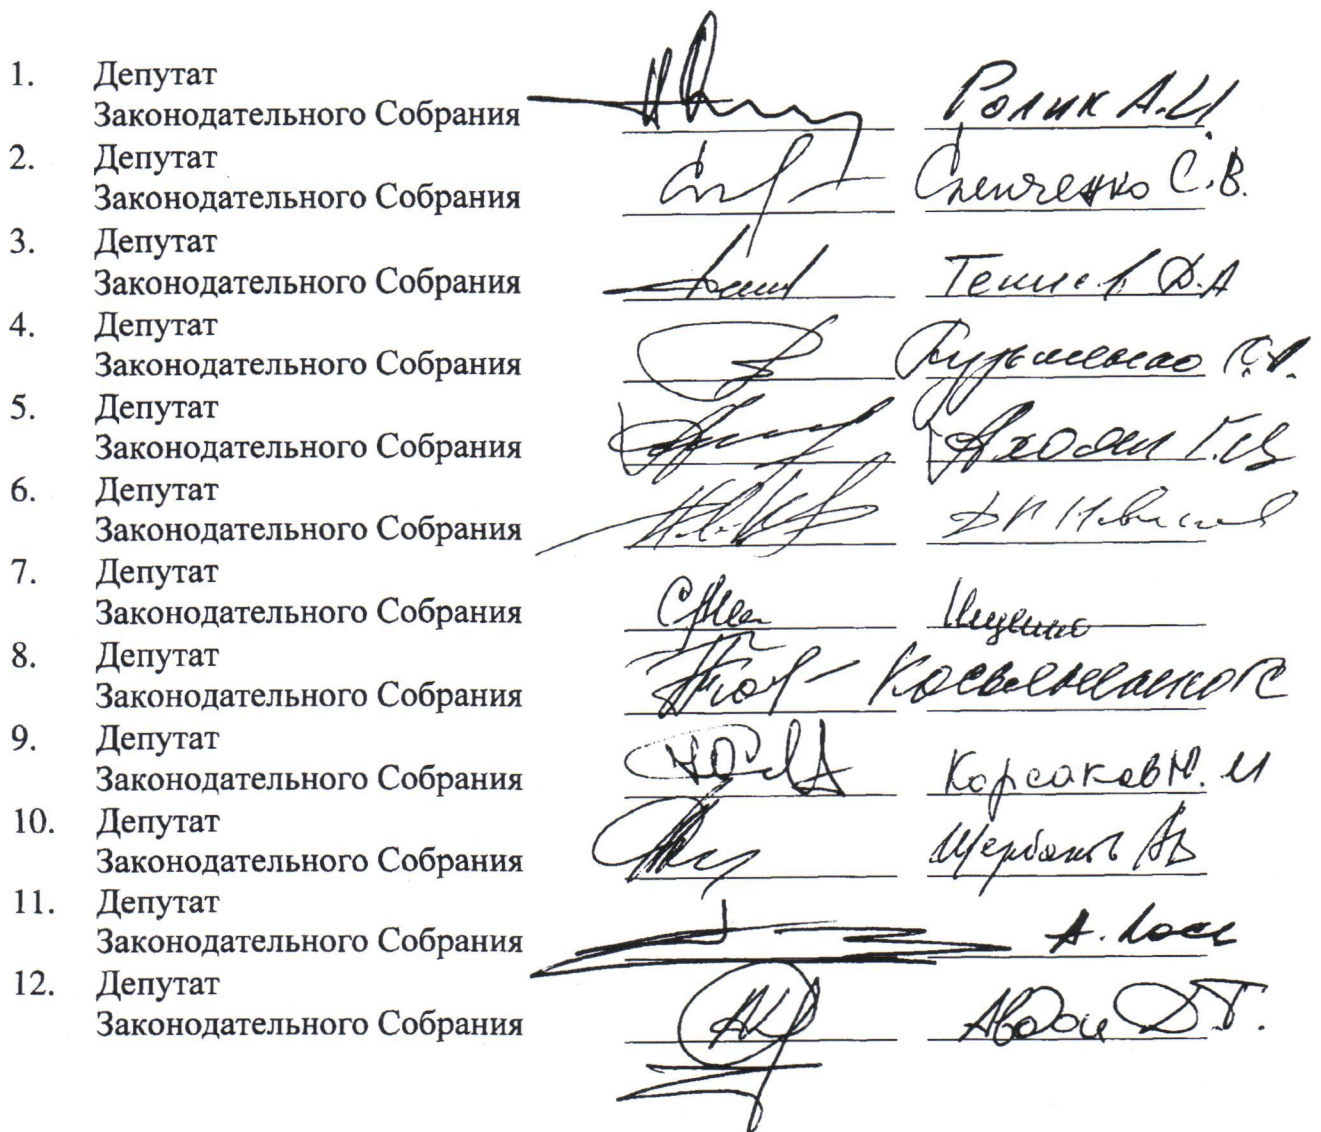 1. Депутат
Законодательного Собрания Ролик А.И.
2. Депутат
Законодательного Собрания Слепченко С.В.
3. Депутат
Законодательного Собрания Д.А
4. Депутат
Законодательного Собрания Кузьменко
5. Депутат
Законодательного Собрания Ахоян
6. Депутат
Законодательного Собрания
7. Депутат
Законодательного Собрания Ищенко
8. Депутат
Законодательного Собрания
9. Депутат
Законодательного Собрания Корсаков Ю.М
10. Депутат
Законодательного Собрания Щербаков АВ
11. Депутат
Законодательного Собрания А.
12. Депутат
Законодательного Собрания Авдои Д.Т.